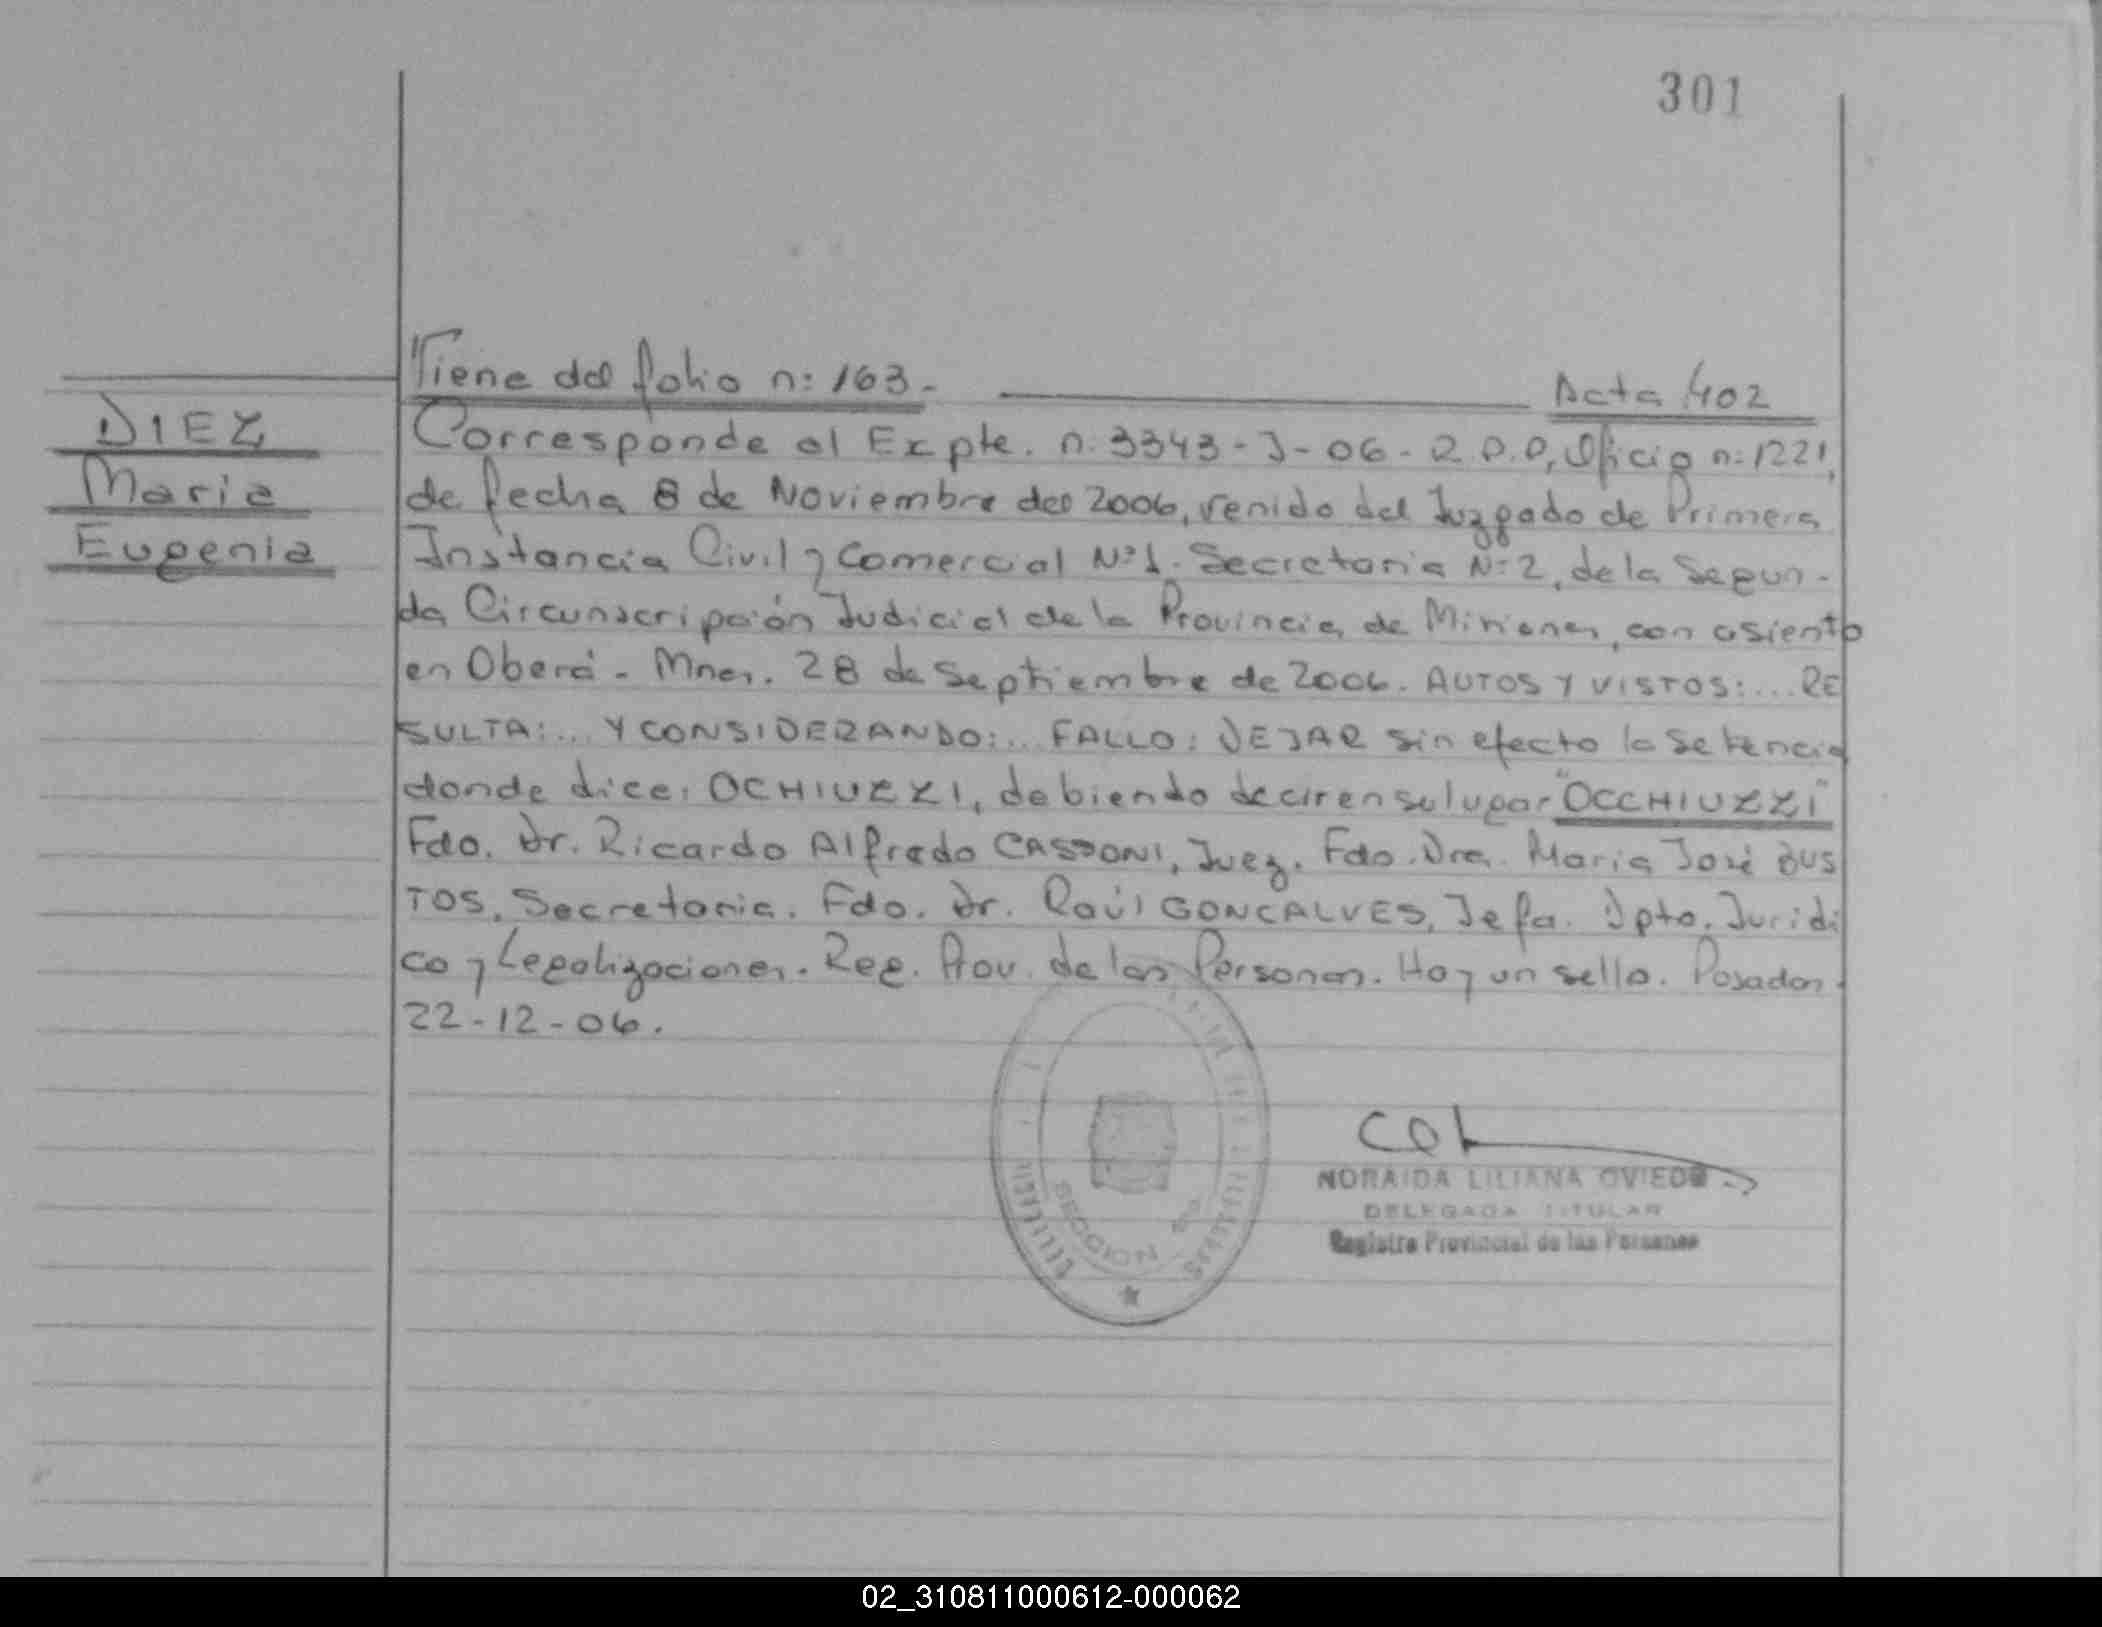 301
Viene del folio n: 163.-
Acta 402
DIEZ
Maria
Eugenia
Corresponde al Expte. n. 3343-J-06-R.P.P, Oficio n: 1221,
de fecha 8 de Noviembre del 2006, venido del Juzgado de Primera
Instancia Civil y Comercial Nº1. Secretaria Nº2, de la Segun-
da Circunscripción Judicial de la Provincia de Misiones, con asiento
en Oberá - Mnes. 28 de Septiembre de 2006. AUTOS Y VISTOS:... RE
SULTA:... Y CONSIDERANDO:... FALLO: DEJAR sin efecto la Setencia
donde dice: OCHIUZZI, debiendo decir en su lugar "OCCHIUZZI"
Fdo. Dr. Ricardo Alfredo CASSONI, Juez. Fdo. Dra. Maria José BUS
TOS, Secretaria. Fdo. Dr. Raúl GONCALVES, Jefa. Dpto. Juridi
co y Legalizaciones. Reg. Prov. de las Personas. Hay un sello. Posadas
22-12-06.
SECCION
NORAIDA LILIANA OVIEDO
DELEGADA TITULAR
Registro Provincial de las Personas
02_310811000612-000062